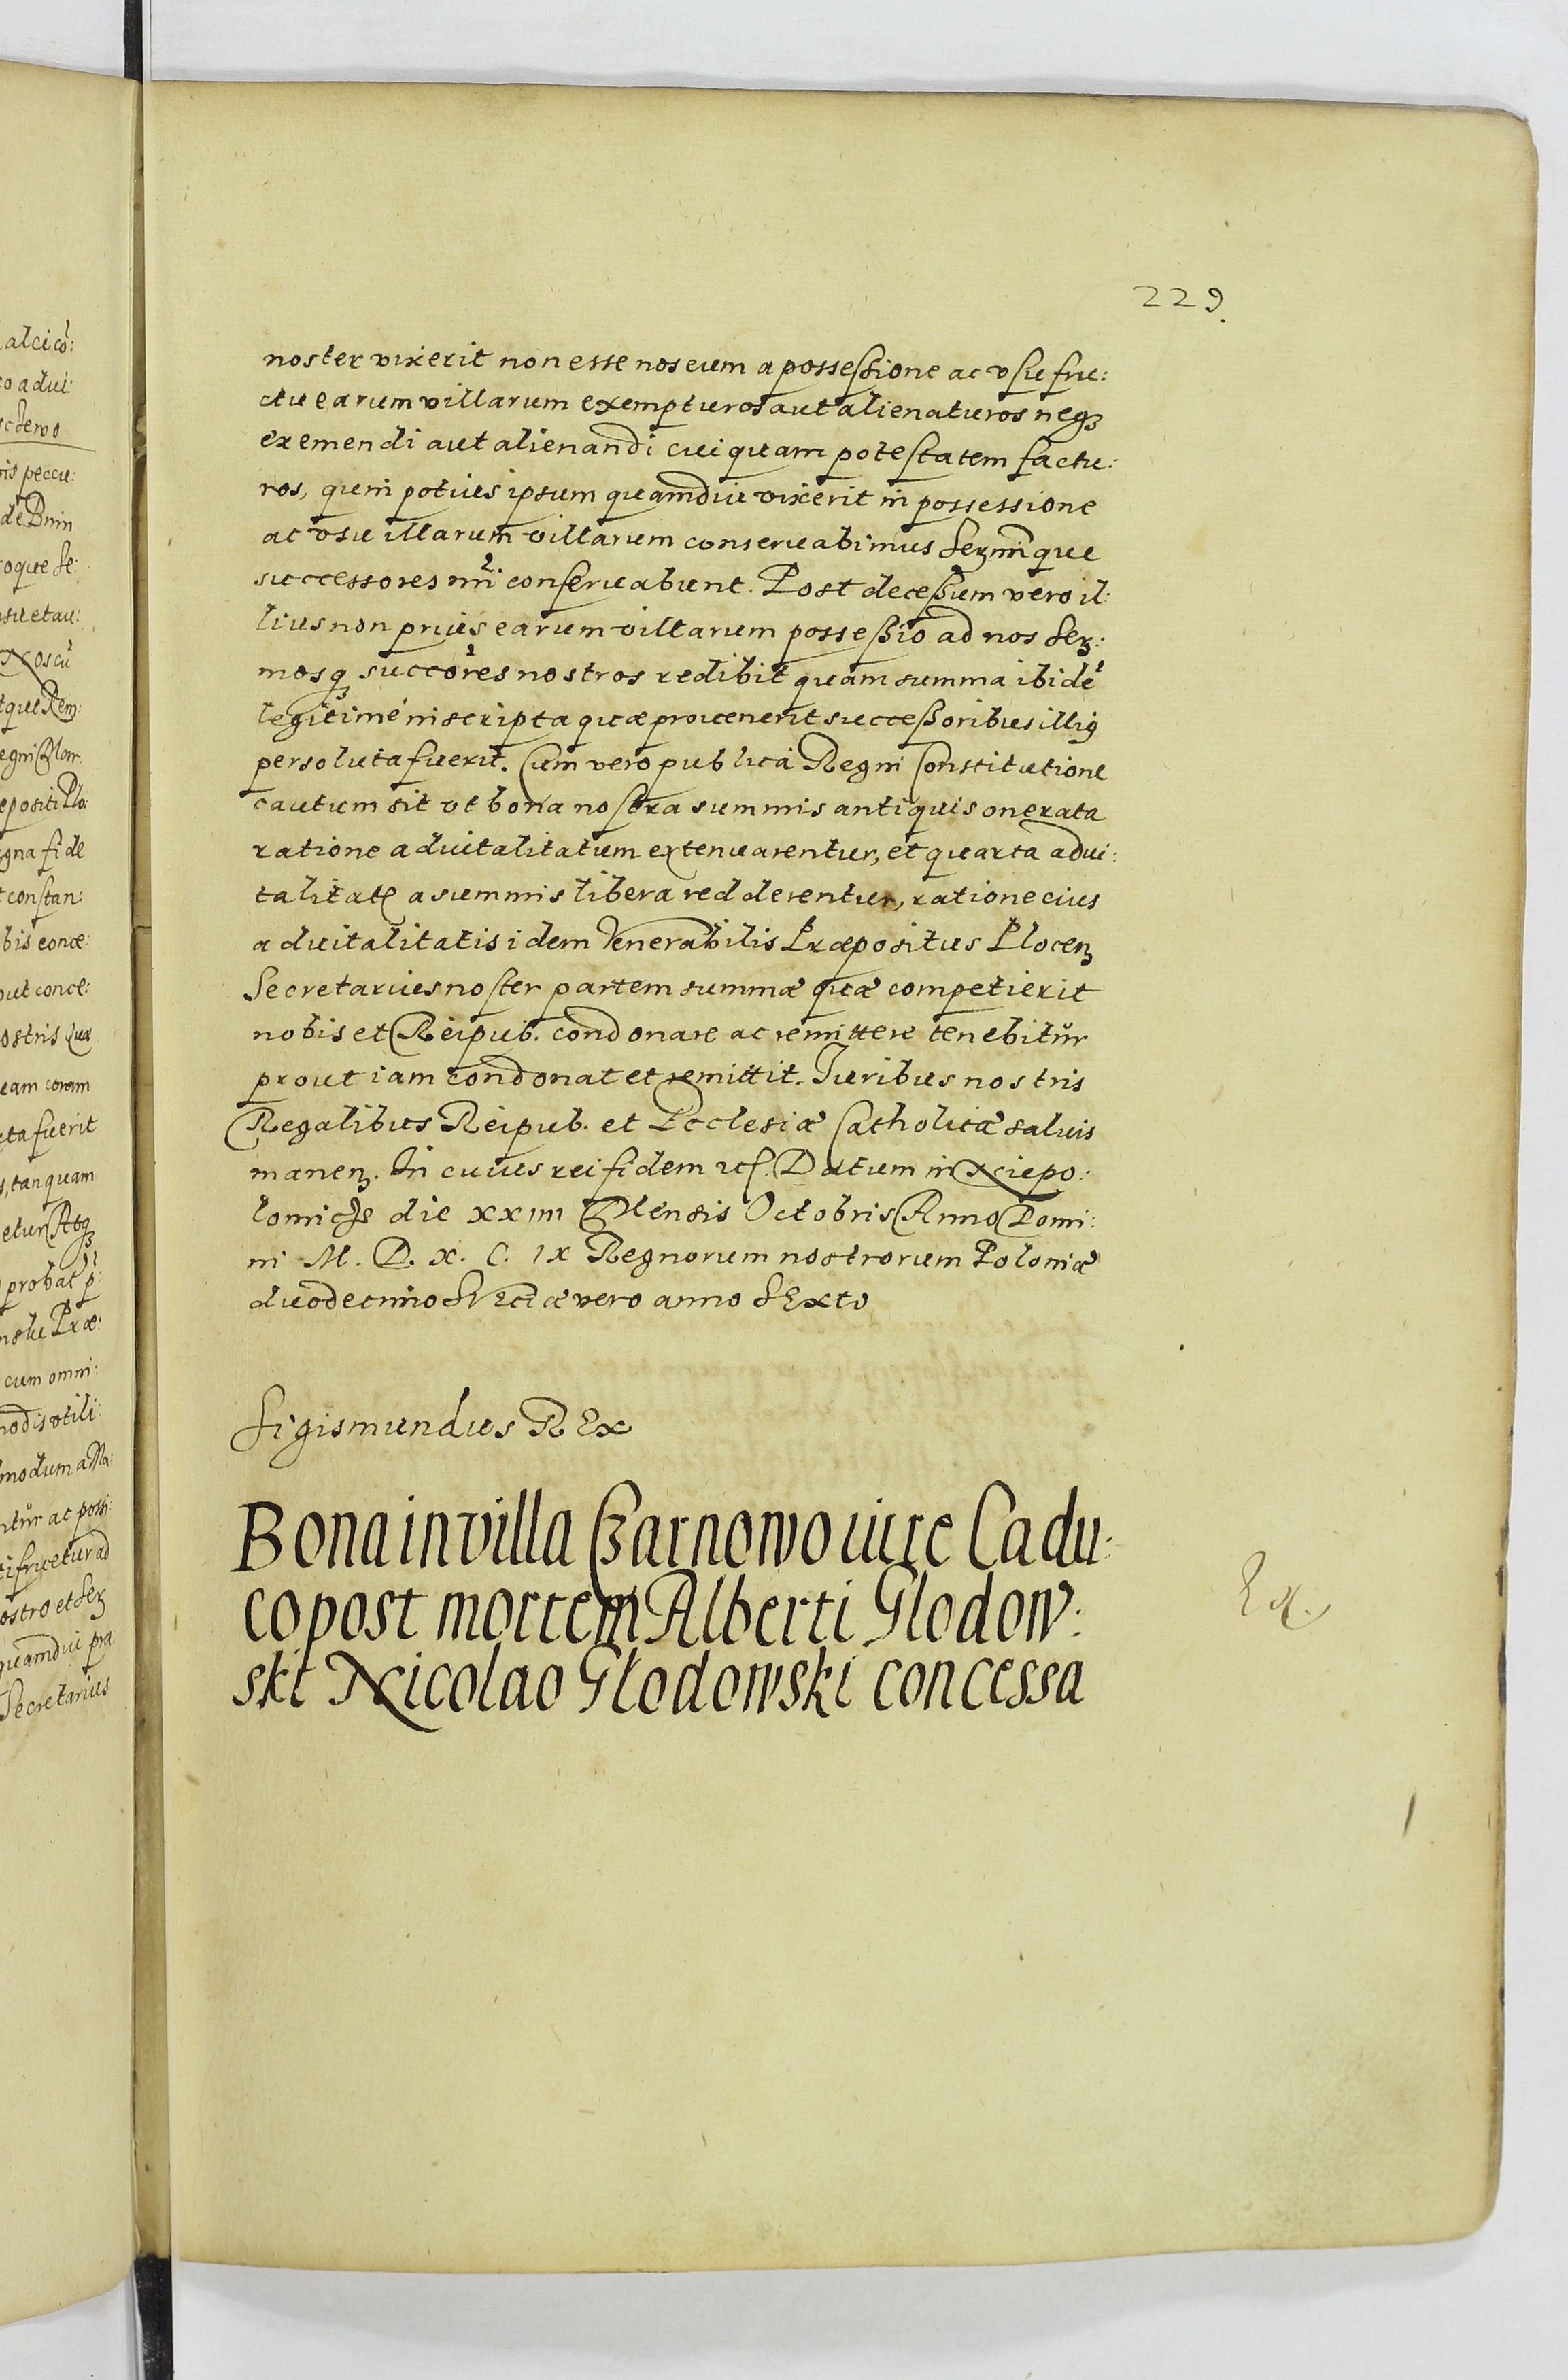 229.
noster vixerit non esse nos eum a possessione ac vsu fru:
ctu earum villarum exempturos aut alienaturos neqꝫ
exemendi aut alienandi cuiquam potestatem factu:
ros, quin potius ipsum quamdiu vixerit in possessione
ac vsu illarum villarum conseruabimus Serꝫmique
successores nri conseruabunt. Post decessum vero il:
lius non prius earum villarum possessio ad nos Serꝫ:
mosqꝫ succores nostros redibit quam summa ibidē
legitimé inscripta quæ prouenerit successoribus illiꝰ
persoluta fuerit. Cum vero publica Regni Constitutione
cautum sit vt bona nostra summis antiquis onerata
ratione aduitalitatum extenuarentur, et quarta adui:
talitatꝭ a summis libera redderentur, ratione eius
aduitalitatis idem Venerabilis Præpositus Plocenꝫ
Secretarius noster partem summæ quæ competierit
nobis et Reipub. condonare ac remittere tenebitur
prout iam condonat et remittit. Iuribus nostris
Regalibus Reipub. et Ecclesiæ Catholicæ saluis
manenꝫ. In cuius rei fidem etc. Datum in Niepo:
lomicze die xxiiii Mensis Octobris Anno Domi:
ni M. D. X. C. IX Regnorum nostrorum Poloniæ
duodecimo SVEciæ vero anno SExto
Sigismundus REx
Bona in villa Czarnowo iure Cadu:
co post mortem Alberti Glodow:
ski Nicolao Glodowski concessa
Ex.
alci cō:
co adui:
ris peccu:
de Bnin
roque Se:
suetau:
Noscū
tque Rem:
egni Mar:
epositi Plo:
gna fide
t constan:
bis conce:
out conce:
ostris Qua
eam coram
eta fuerit
s, tanquam
etur Atqꝫ
probat p:
nslu Præ:
cum omni:
nodis vtili:
modum a Na:
ntur ac possi:
ti fruetur ad
ostro et Serꝫ
quamdiu præ
Secretarius